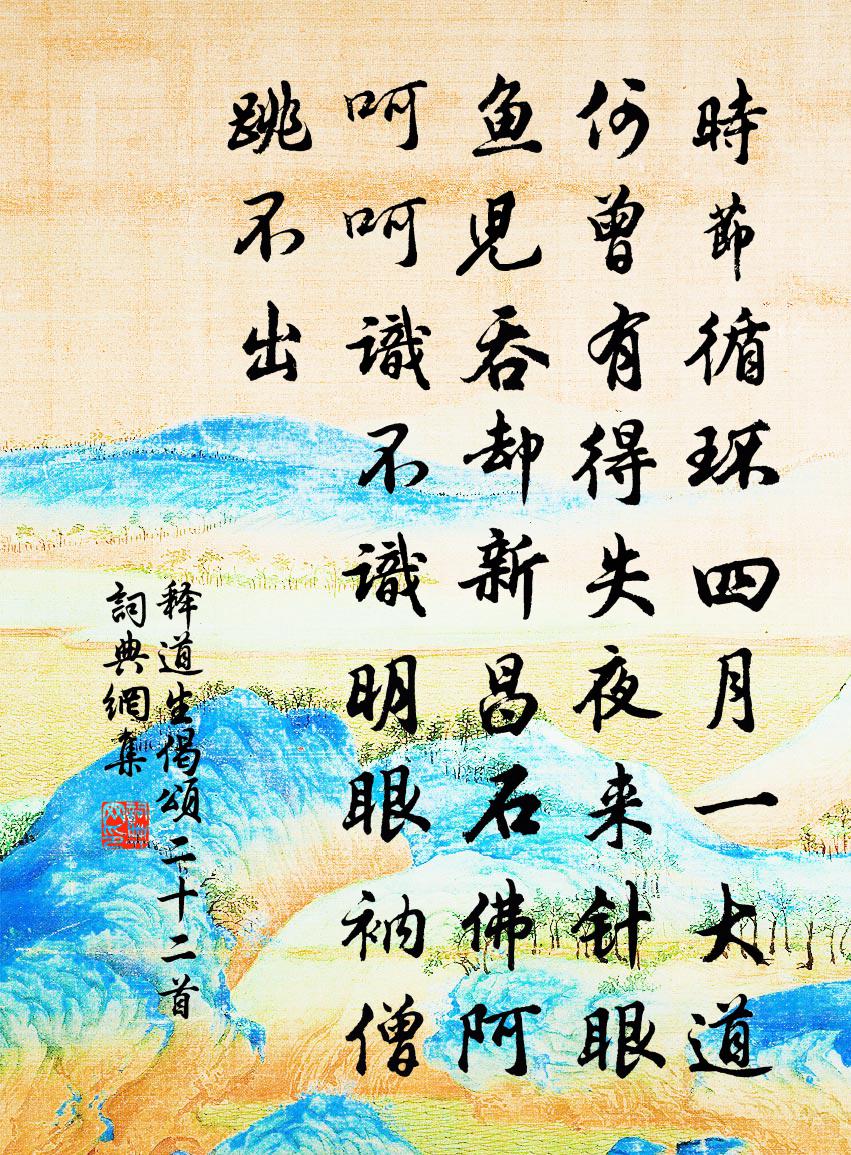 時節循环四月一大道
何曾有得失夜来针眼
鱼児吞却新昌石佛阿
呵呵識不識明眼衲僧
跳不出
释道生偈頌二十二首
詞典網集